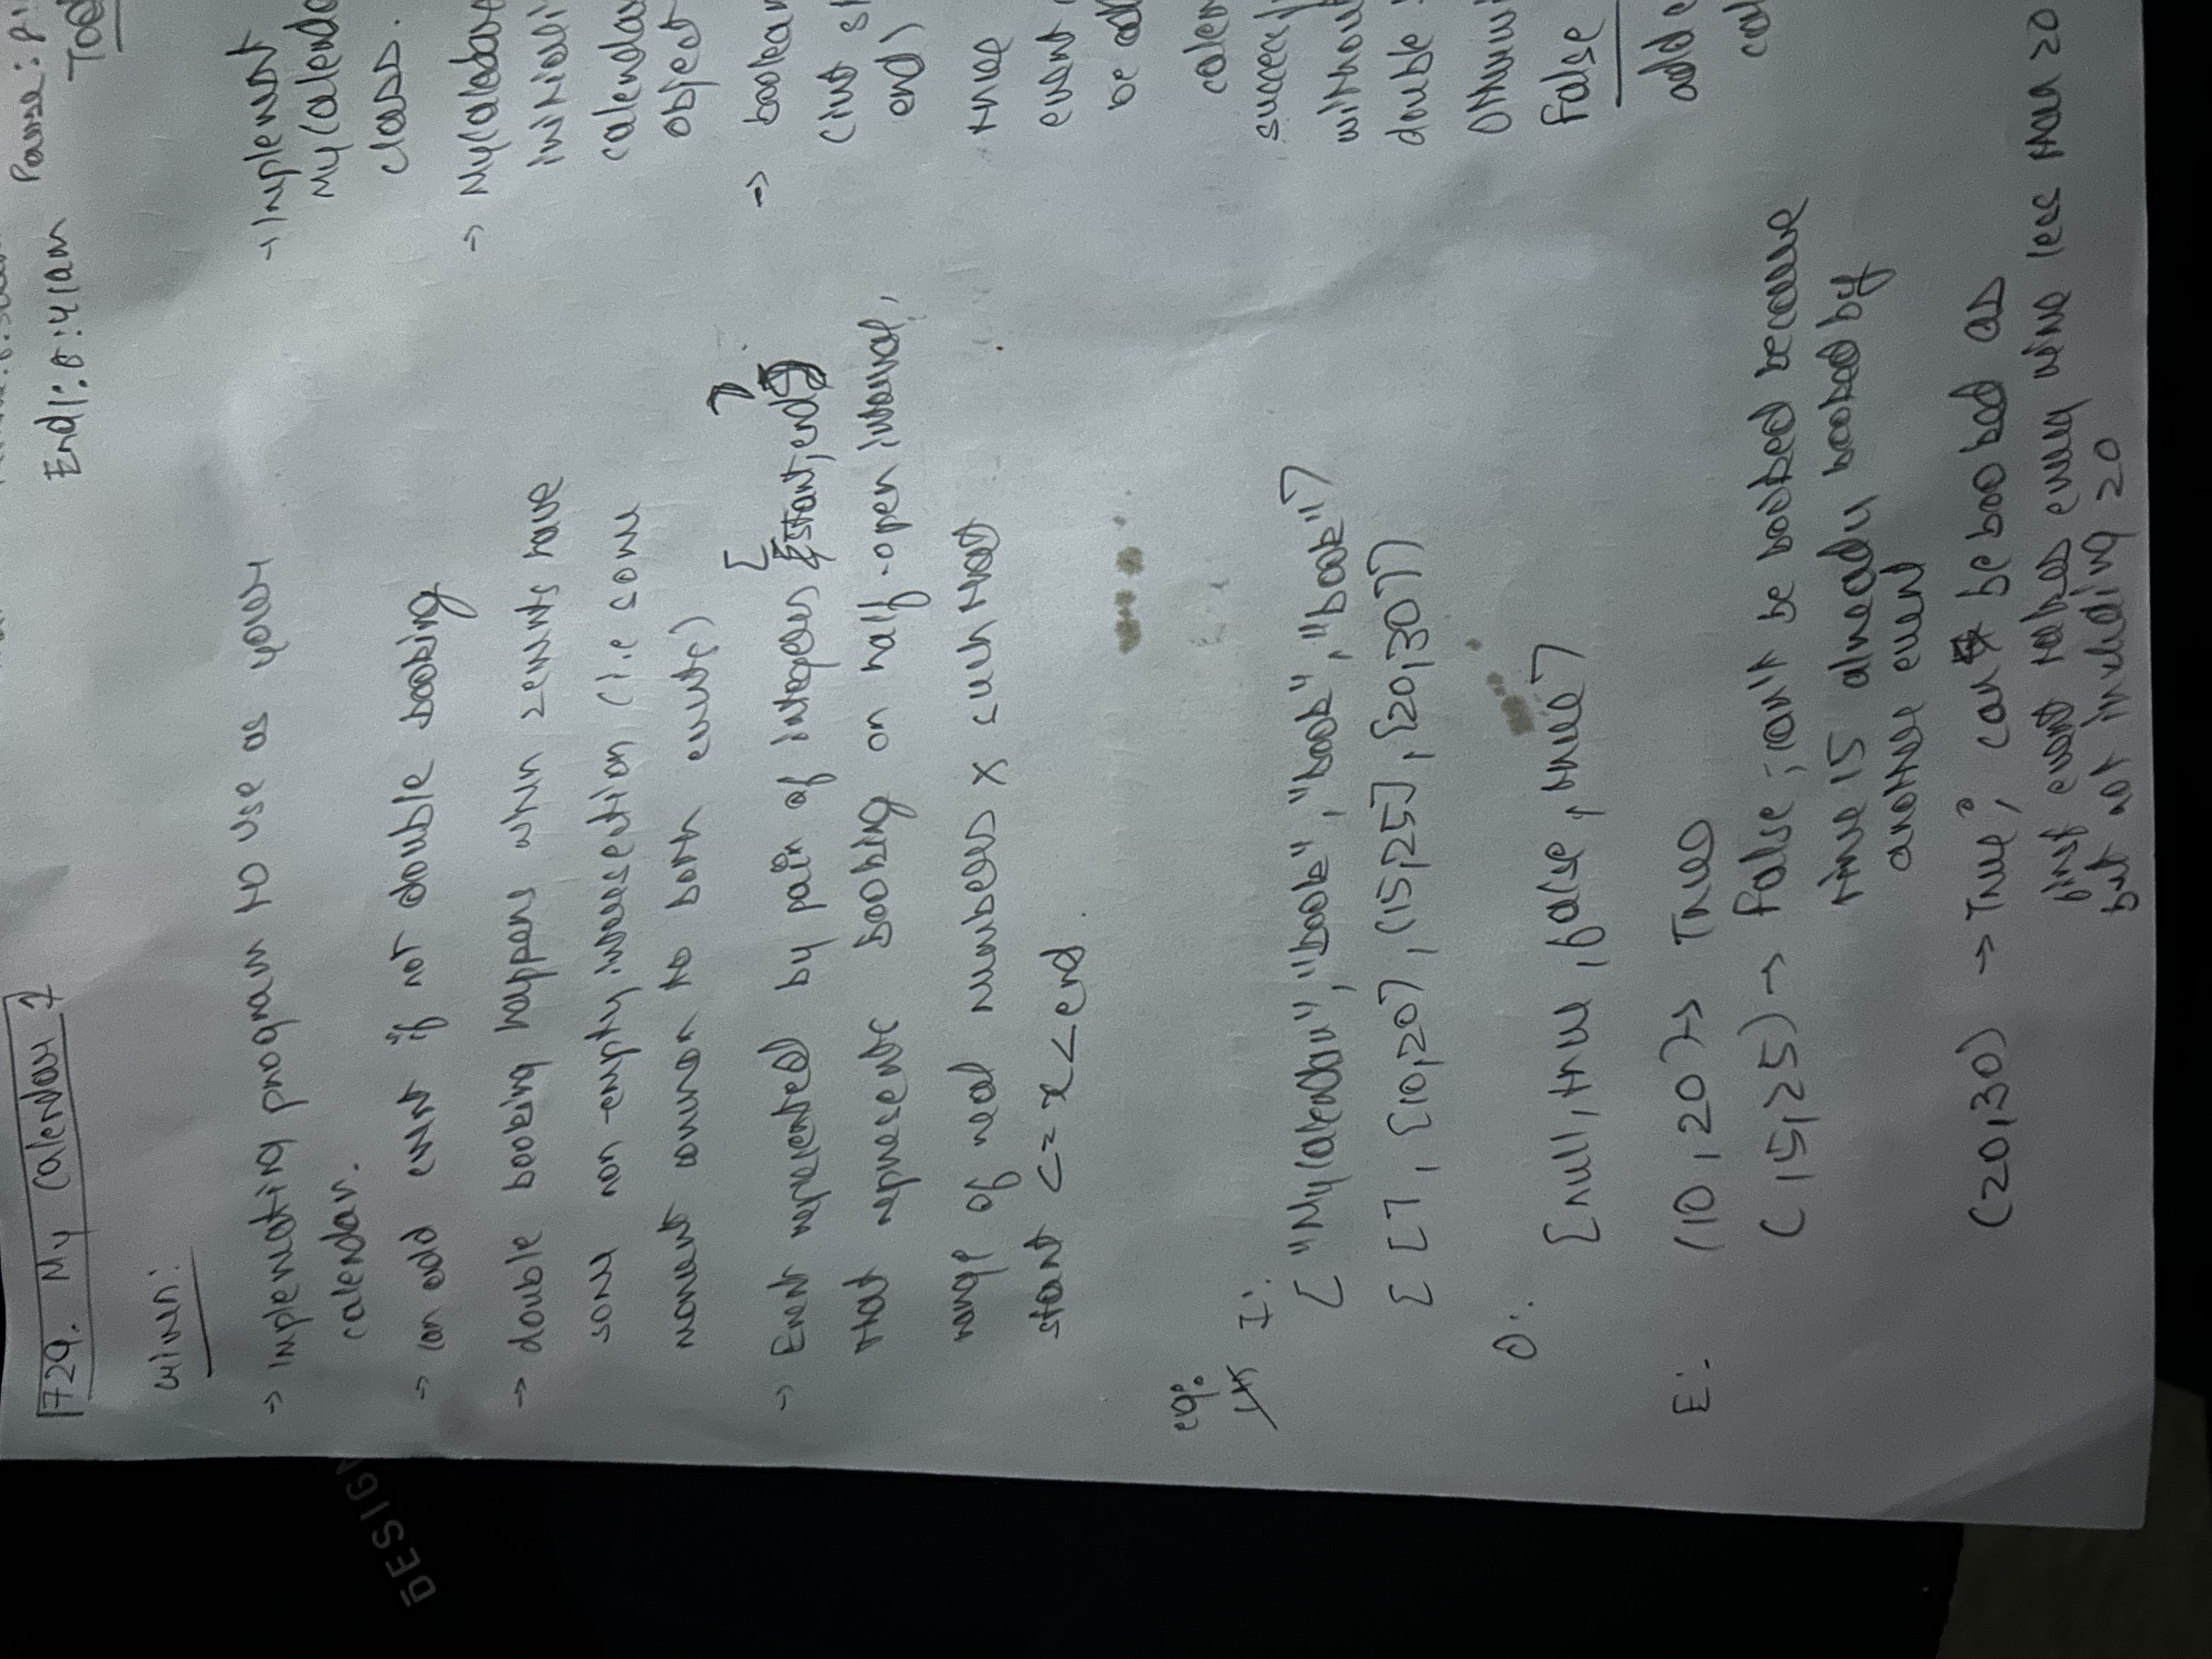 729. My Calendar 1
End1: 8:41am
Pause: 8:
TOD
Given:
→ Implementing program to use as your
calendar.
→ can add event if not double booking
→ double booking happens when 2 events have
some non-empty intersection (i.e some
moment common to both events)
→ Event represented by pair of integers [start, end]
that represents booking on half-open interval,
range of real numbers x such that
start <= x < end.
eg:
I:
["MyCalendar", "book", "book", "book"]
[[], [10,20], (15,25], [20,30]]
O:
[null, true, false, true]
E: (10,20) → True
(15,25) → False; can't be booked because
time 15 already booked by
another event
(20,30) → True; can be booked as
first event takes every time less than 20
but not including 20
→ Implement
MyCalenda
class.
→ MyCalendar
initiali
calendar
object
→ boolean
(int st
end)
true
event
be ad
calen
successf
without
double
Otherwi
False
add e
cal
DESIGN